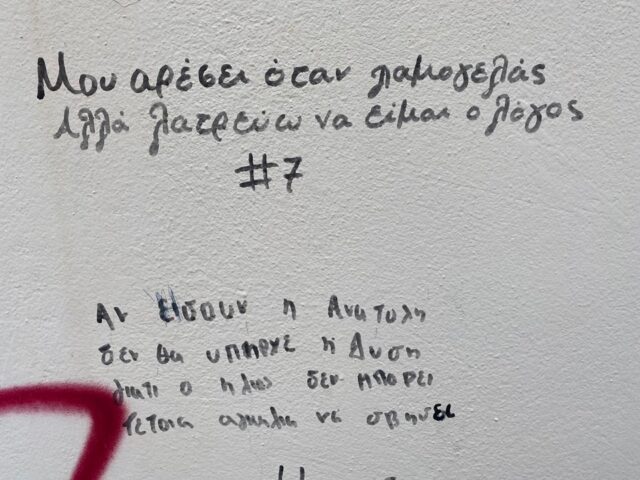 Μου αρέσει όταν χαμογελάς
Αλλά λατρεύω να είμαι ο λόγος
#7
Αν είσουν η Ανατολη
δεν θα υπηρχε η Δυση
γιατι ο ηλιος δεν μπορει
τετοια να σβησει